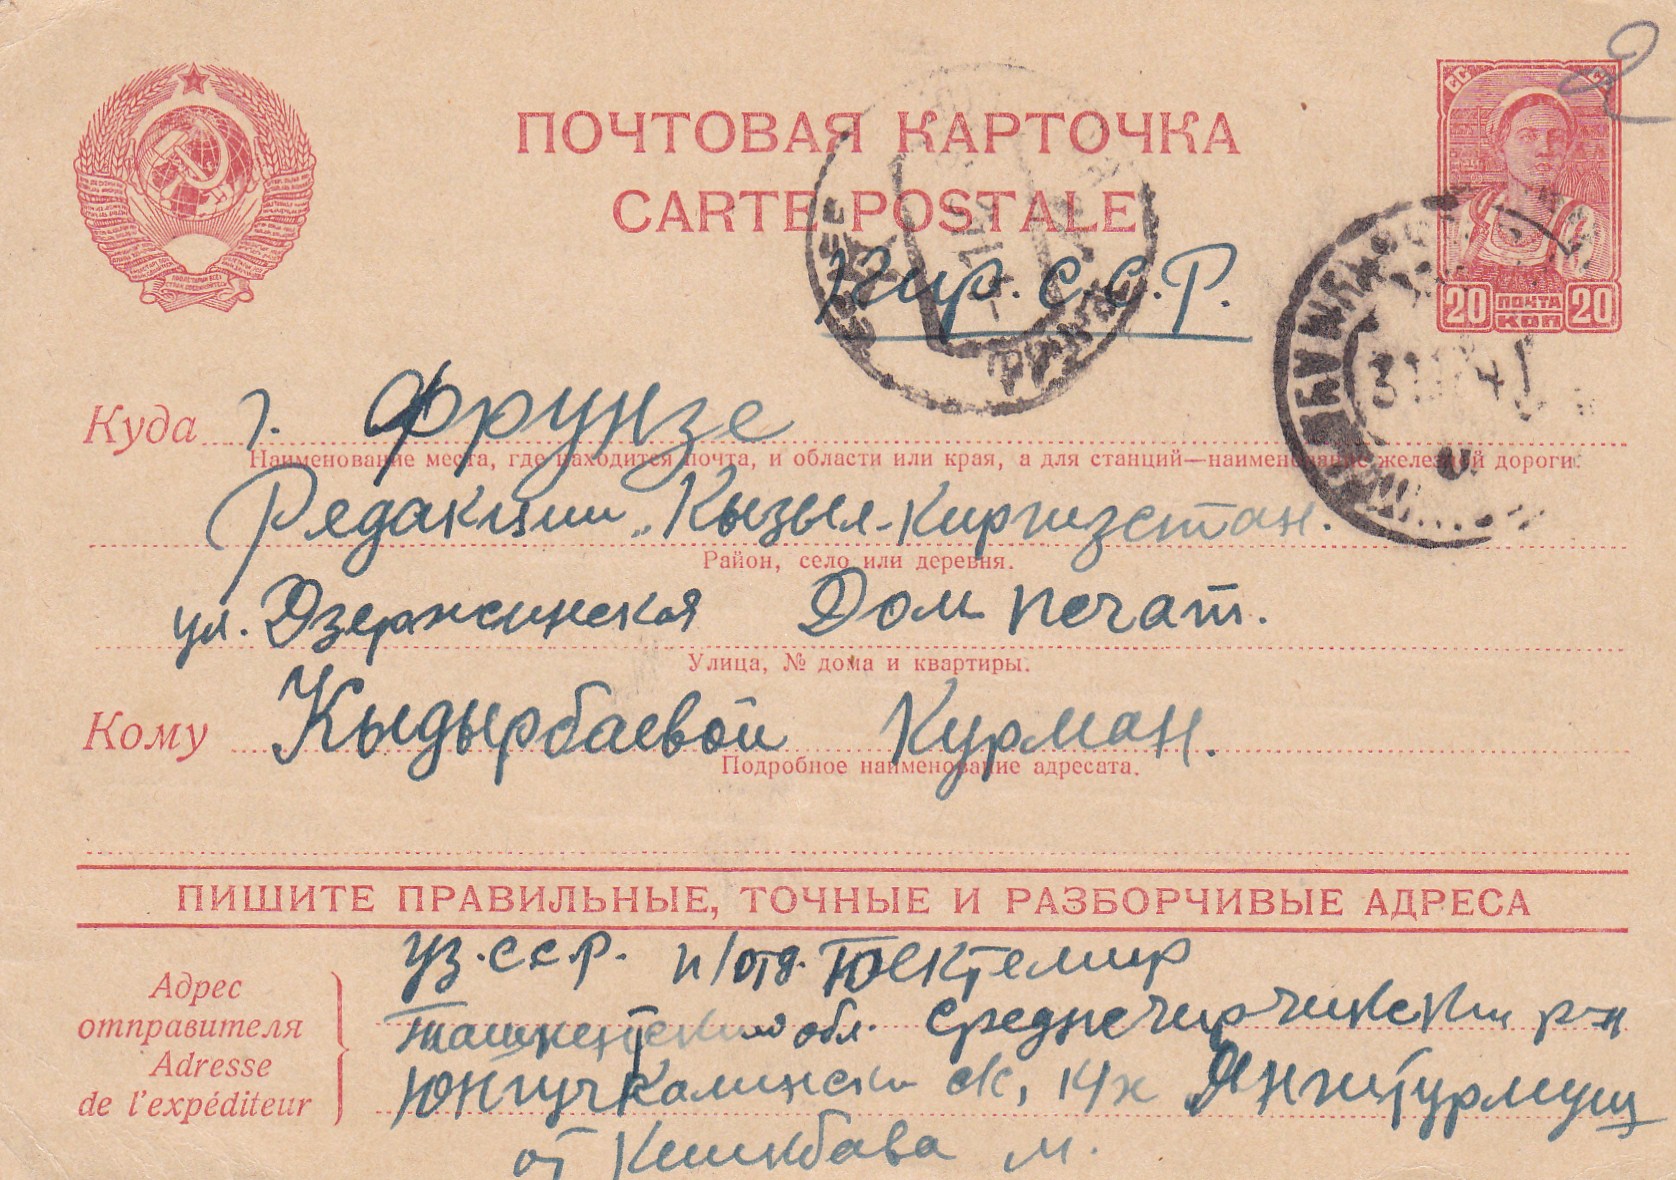 ПОЧТОВАЯ КАРТОЧКА
CARTE POSTALE
СС
20 ПОЧТА КОП 20
Кир. С.С.Р.
Куда г. Фрунзе
Наименование места, где находится почта, и области или края, а для станций—наименование железной дороги.
Редакции „Кызыл-Киргизстан.
Район, село или деревня.
ул. Дзержинская Дом печат.
Улица, № дома и квартиры.
Кому Кыдырбаевой Курман.
Подробное наименование адресата.
ПИШИТЕ ПРАВИЛЬНЫЕ, ТОЧНЫЕ И РАЗБОРЧИВЫЕ АДРЕСА
Адрес
отправителя
Adresse
de l'expéditeur
Уз.ССР. п/отд. Тоектемир
Ташкентский обл. Среднечирчикский р-н
Юнгучкалински с/с, к/х Янгитурмуш
от Кишкбава М.